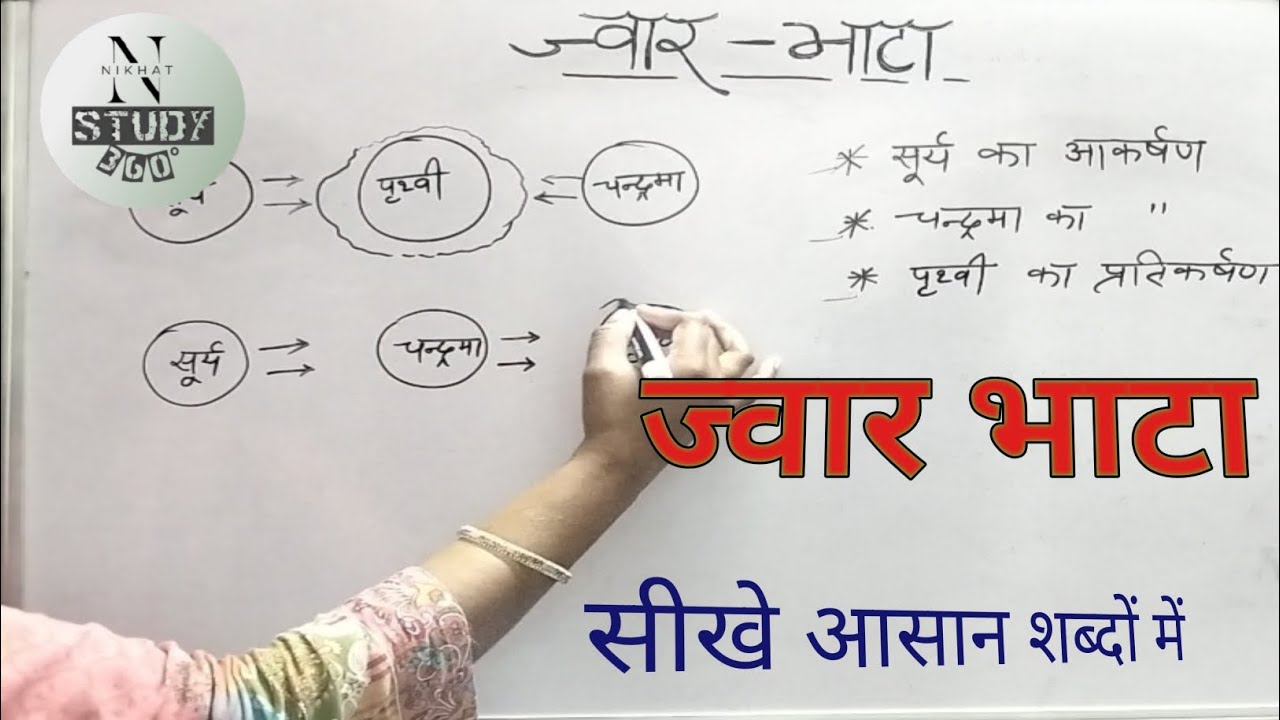 ज्वार - भाटा
N
NIKHAT
STUDY
360°
सूर्य पृथ्वी चन्द्रमा
* सूर्य का आकर्षण
* चन्द्रमा का "
* पृथ्वी का प्रतिकर्षण
सूर्य चन्द्रमा
ज्वार भाटा
सीखे आसान शब्दों में